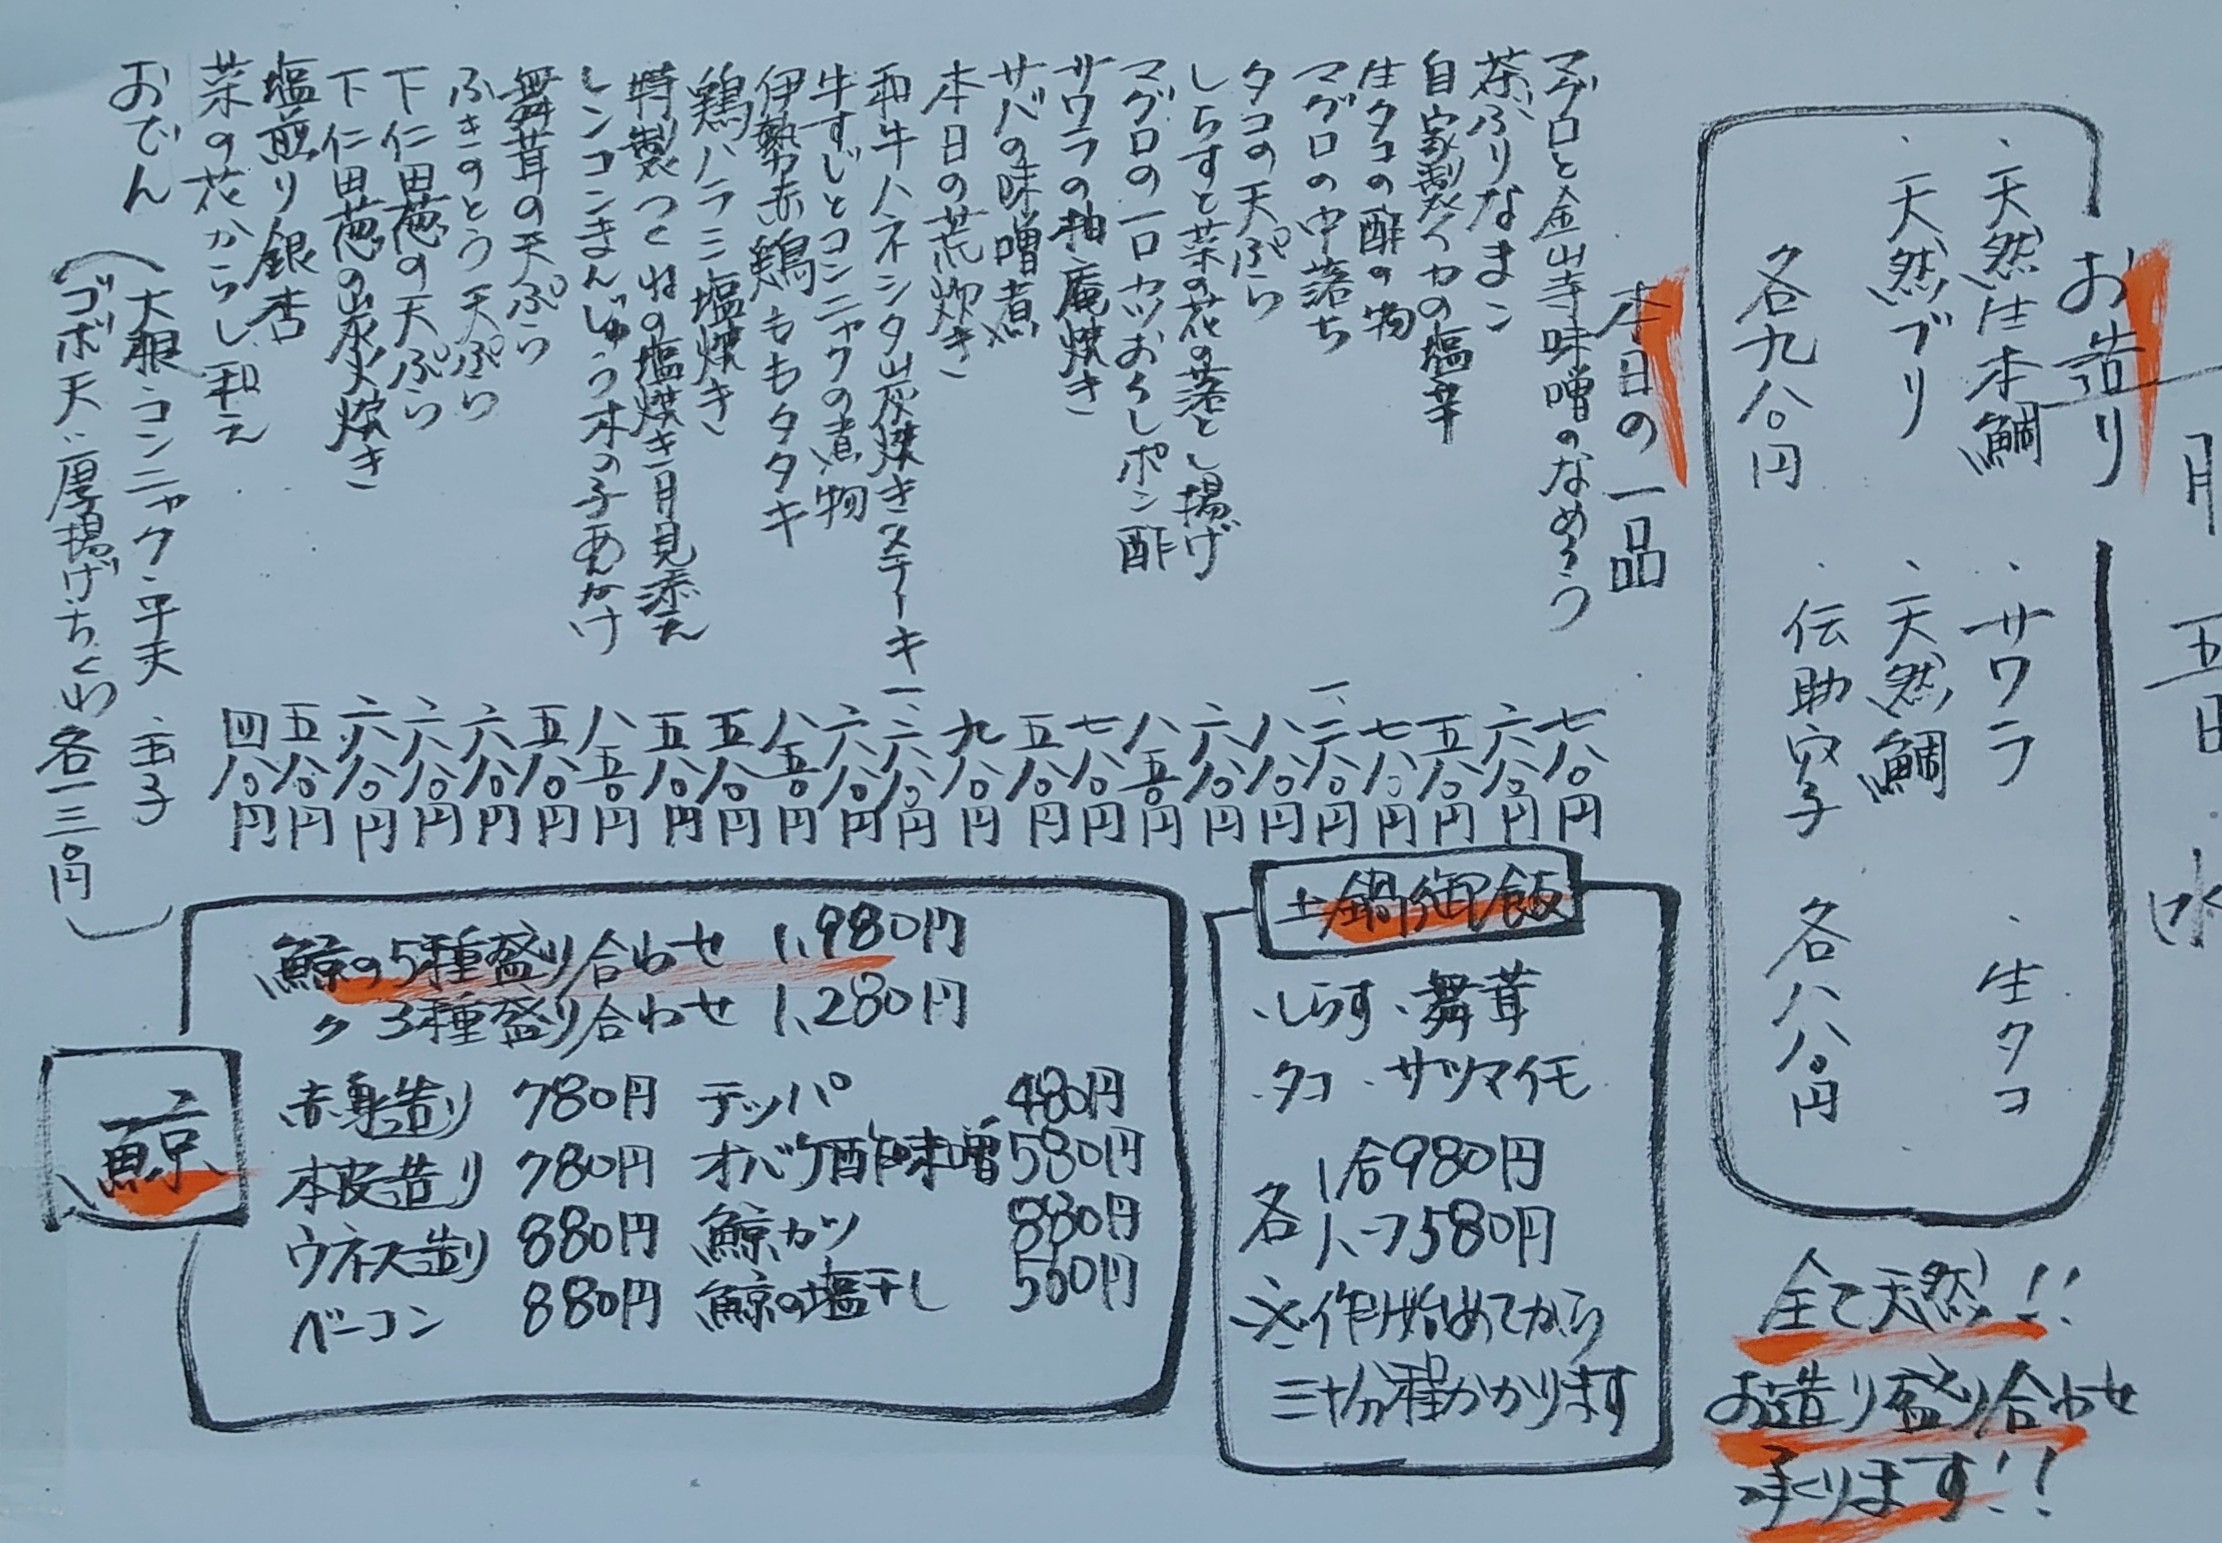 月五日 水
お造り
・天然生本鯛 ・サワラ ・生タコ
・天然ブリ ・天然鯛
各九八〇円 ・伝助穴子 各八八〇円
全て天然!!
お造り盛り合わせ
承ります!!
本日の一品
マグロと金山寺味噌のなめろう 七八〇円
茶ぶりなまこ 六八〇円
自家製イカの塩辛 五八〇円
生タコの酢の物 七八〇円
マグロの中落ち 一、二八〇円
タコの天ぷら 八八〇円
しらすと菜の花の落とし揚げ 六八〇円
マグロの一口カツおろしポン酢 八五〇円
サワラの柚庵焼き 七八〇円
サバの味噌煮 五八〇円
本日の荒炊き 九八〇円
和牛ハネシタ山炭焼きステーキ 一、二八〇円
牛すじとコンニャクの煮物 六八〇円
伊勢赤鶏ももタタキ 八五〇円
鶏ハラミ塩焼き 五八〇円
特製つくねの塩焼き 月見添え 五八〇円
レンコンまんじゅう木の子あんかけ 八五〇円
舞茸の天ぷら 五八〇円
ふきのとう天ぷら 六八〇円
下仁田葱の天ぷら 六八〇円
下仁田葱の炭火焼き 六八〇円
塩煎り銀杏 五八〇円
菜の花からし和え 四八〇円
おでん
(大根・コンニャク・平天・玉子
ゴボ天・厚揚げ・ちくわ 各一三〇円)
土鍋御飯
・しらす・舞茸
・タコ・サツマイモ
各 1合980円
ハーフ580円
※作り始めてから
三十分程かかります
鯨
鯨の5種盛り合わせ 1,980円
〃 3種盛り合わせ 1,280円
赤身造り 780円 テッパ 480円
本皮造り 780円 オバケ酢味噌 580円
ウネス造り 880円 鯨カツ 880円
ベーコン 880円 鯨の塩干し